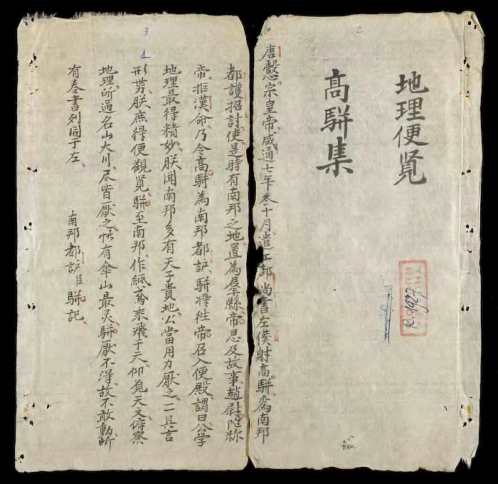 地理便覧
高駢集
唐懿宗皇帝咸通七年冬十月遣工部尚書左僕射高駢為南邦
都護招討使是時有南邦之地置為郡縣帝思及故事趙尉陀称
帝推漢命乃令高駢為南邦都護駢将徃帝召入便殿謂曰公学
地理最得精妙朕聞南邦多有天子貴地公當用力厭之一一具言
形势朕庶得便觀覧駢至南邦作紙鳶乘飛于天仰觀天文俯察
地理所過名山大川尽皆厭之惟有傘山最灵駢厭不得故不敢動斬
有奏書列同于左
南邦都護駢記